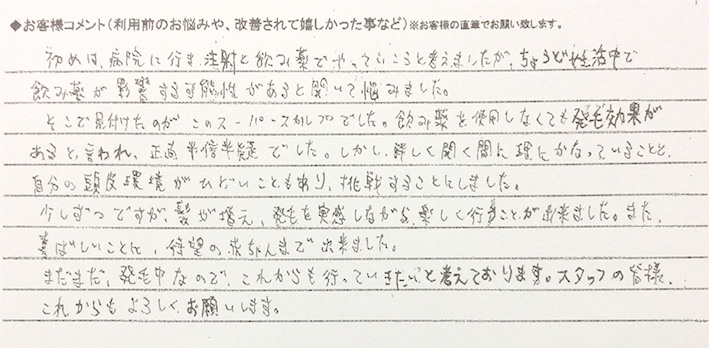 ◆お客様コメント(利用前のお悩みや、改善されて嬉しかった事など)※お客様の直筆でお願い致します。
初めは、病院に行き、注射と飲み薬でやっていこうと考えましたが、ちょうど妊活中で
飲み薬が影響する可能性があると聞いて悩みました。
そこで見付けたのがこのスーパースカルプでした。飲み薬を使用しなくても発毛効果が
あると言われ、正直半信半疑でした。しかし、詳しく聞く間に理にかなっていることと、
自分の頭皮環境がひどいこともあり、挑戦することにしました。
少しずつですが、髪が増え、発毛を実感しながら、楽しく行うことが出来ました。また、
喜ばしいことに、待望の赤ちゃんまで出来ました。
まだまだ、発毛中なので、これからも行っていきたいと考えております。スタッフの皆様、
これからもよろしくお願いします。